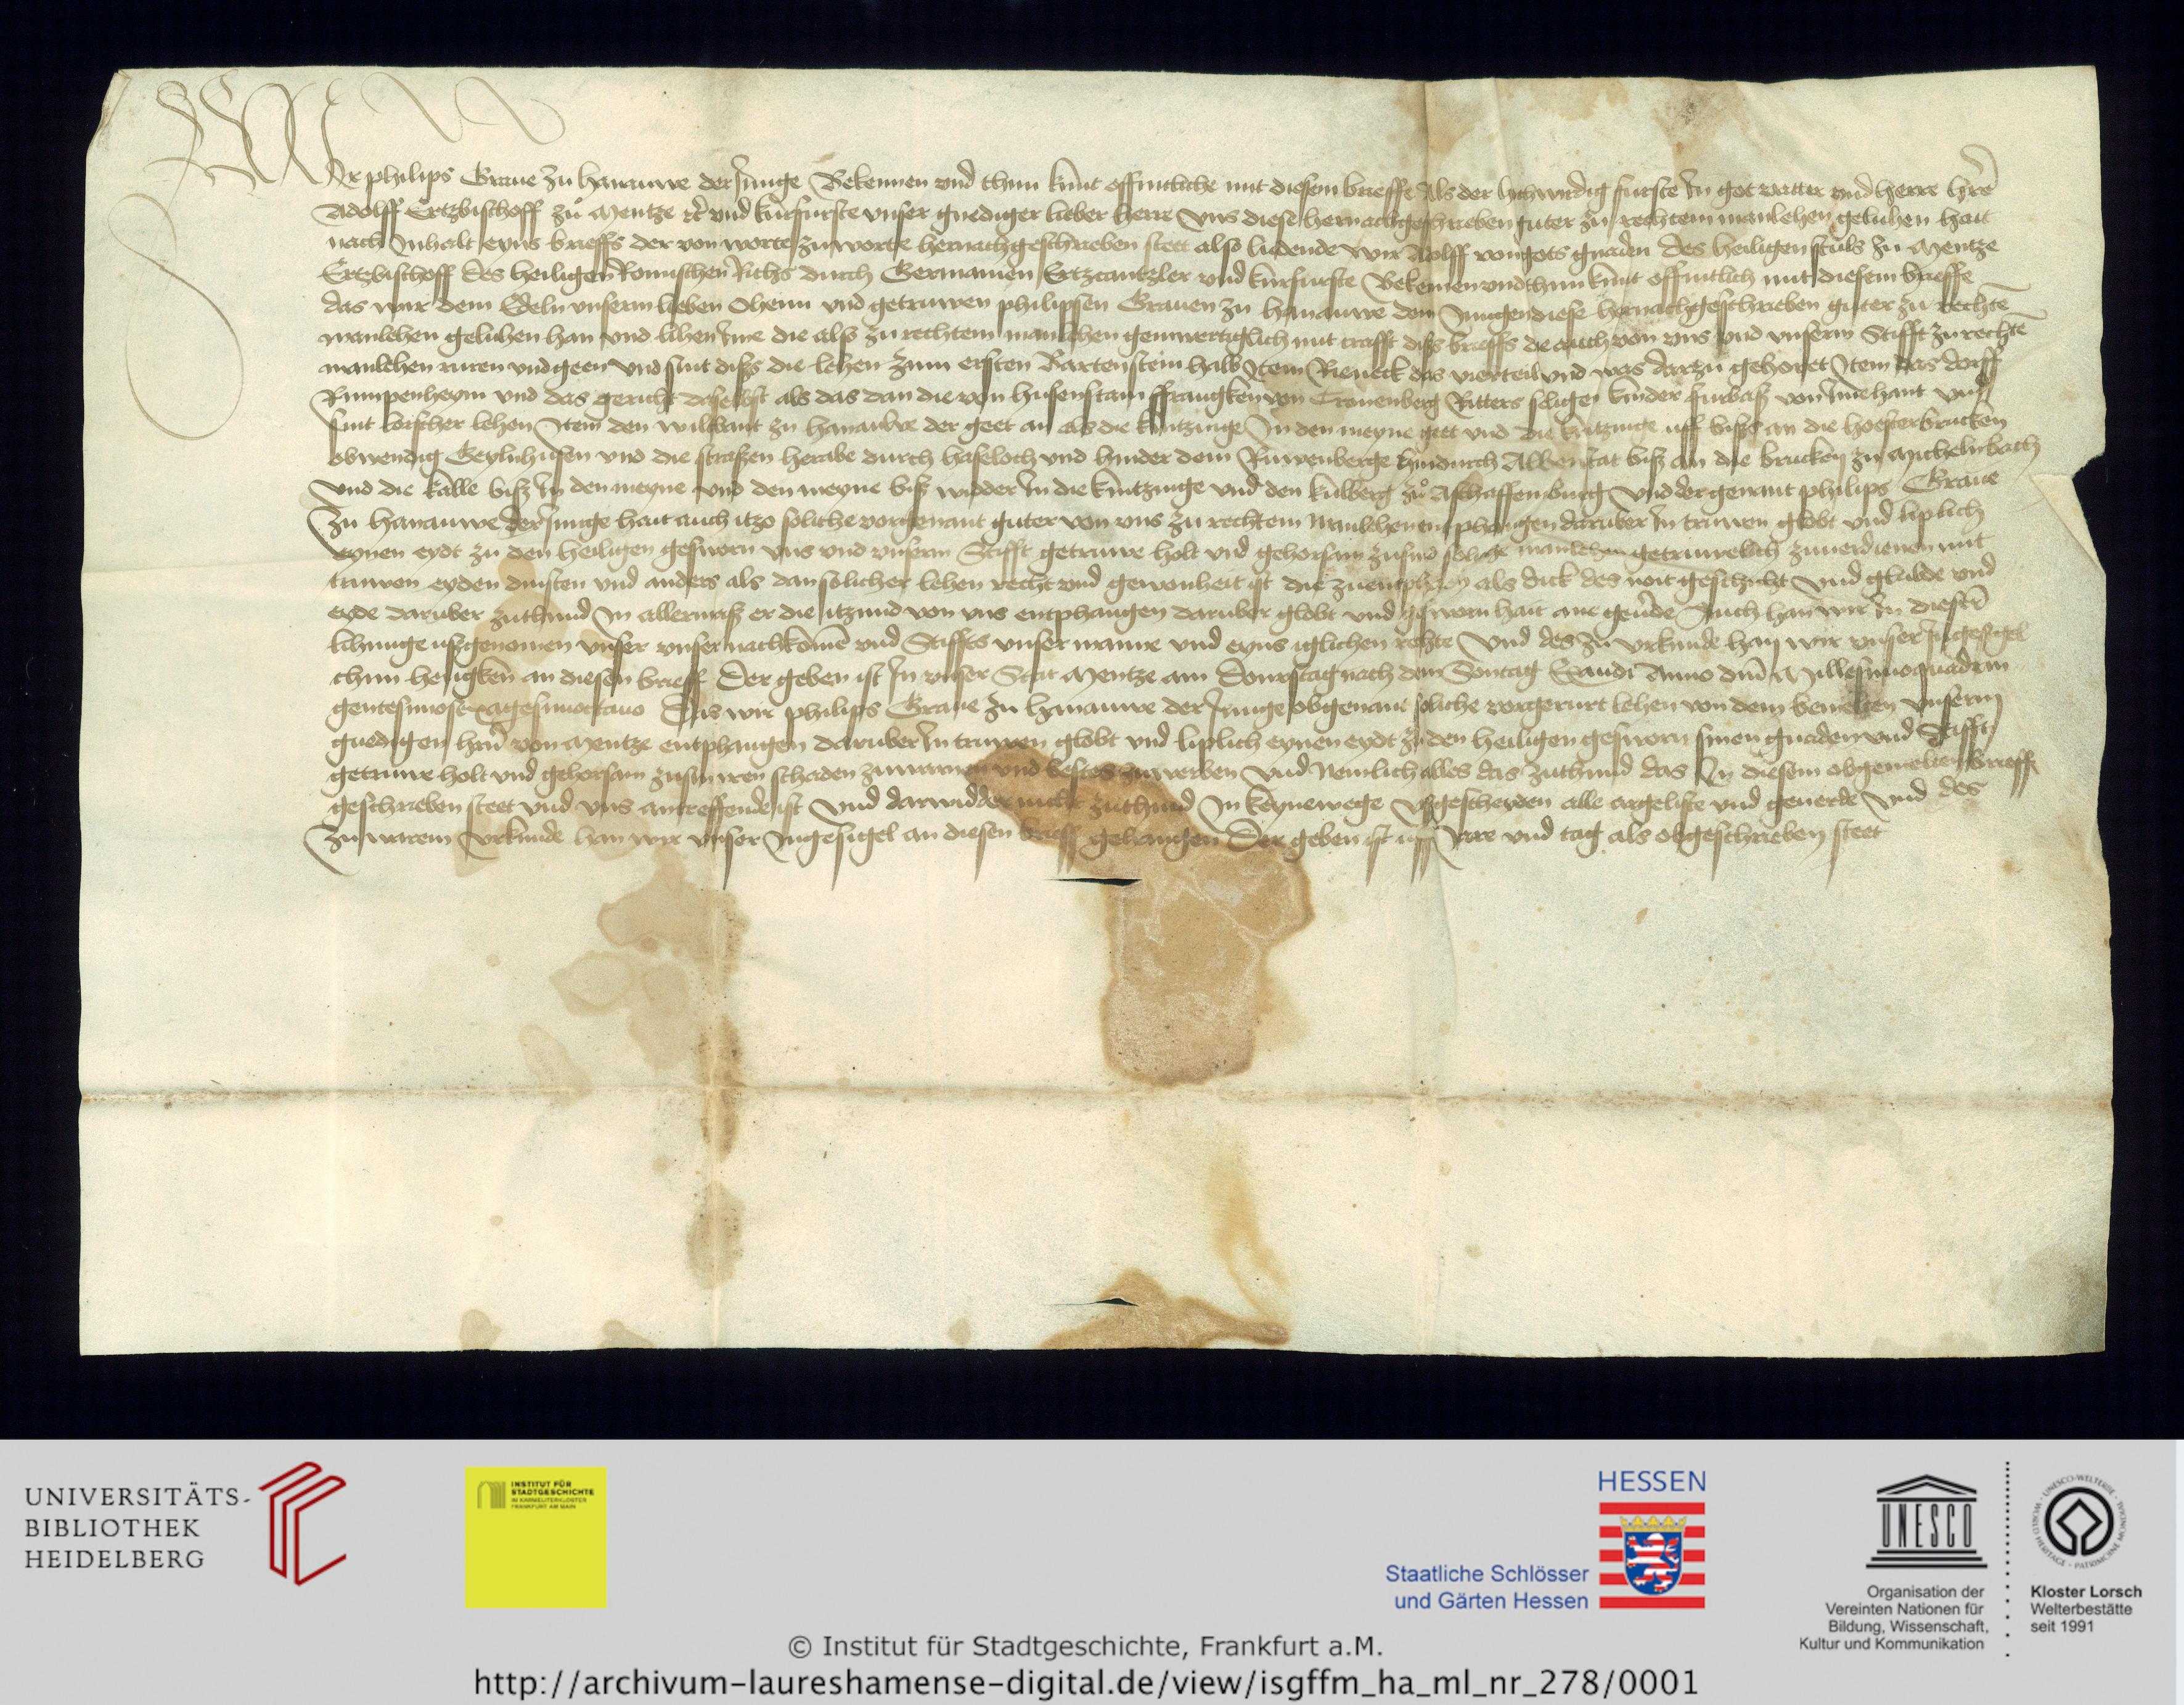 Wir philips Graue zu hanauwe der Junge Bekennen vnd thun kunt offintliche mit diesem brieffe Als der hochwirdig furste In got vatter vnd herre h're
Adolff Ertzbischoff zu Mentze rc' vnd kurfurste vnser gnediger lieber herre vns diese hernachgeschrieben guter zu rechtem manlehen geluhen hait
nach Inhalt eyns brieffs der von worte zu worte hernachgeschrieben steet also ludende wir Adolff von gots gnaden des heiligen stuls zu Mentze
Ertzbischoff des heiligen Romischen Richs durch Germanien Ertzcantzler vnd kurfurste Bekennen vnd thun kunt offintlich mit diesem brieffe
das wir dem Edeln vnserm lieben Ohemm vnd getruwen philipsen Grauen zu hanauwe dem Jungen diese hernachgeschrieben guter zu rechte
manlehen geluhen han vnd lihen Ime die also zu rechtem manlehen geinwertiglich mit crafft diß brieffs die auch von vns vnd vnserm Stifft zu rechte
manlehen ruren vnd geen vnd sint diß die lehen zum ersten Bartenstein halb Item Rieneck das vierteil vnd was darzu gehoret Item das dorff
Rumpenheym vnd das gericht daselbst als das dan die von husenstam ffrangken von Cronenberg Ritters seligen kinder furbaß von Ime hant vnd
sint lorscher lehen Item den wiltbant zu hanauwe der geet an als die kintzinge In den meyne geet vnd die kintzinge uff biß an die hoesterbrucken
obwendig Geylnhusen vnd die straßen herabe durch haseloch vnd hinder dem Ruwenberge hindurch Alkentat biß an die brucken zu Michelnbach
vnd die kalle biß In den meyne vnd den meyne biß widder In die kintzinge vnd den kulberg zu Aschaffenburg vnd der genant philips Graue
zu hanauwe der Junge hait auch itzo soliche vorgenant guter von vns zu rechtem manlehen entphangen daruber In truwen globt vnd liplich
eynen eydt zu den heiligen gesworn vns vnd vnserm Stifft getruwe holt vnd gehorsam zusind solich manlehen getruwelich zuuerdienen mit
truwen eyden dinsten vnd anders als dan solicher lehen recht vnd gewonheit ist die zuentphaen als dick des noit geschicht vnd glubde vnd
eyde daruber zuthund In allermaß er die itzund von vns entphangen daruber globt vnd gesworn hait ane geu'de Auch han wir In dieser
lihunge ußgenomen vnser vnser nachkomen vnd Stiffts vnser manne vnd eyns iglichen rechte vnd des zu vrkunde han wir vnser Ingesigel
thun hengken an diesen brieff Der geben ist In vnser Stat Mentze am Donrstag nach dem Sontag Exaudi Anno dni Millesimoquadrin
gentesimosexagesimooctauo Das wir philips Graue zu hanauwe der Junge obgenant soliche vorgerurt lehen von dem benielten vnserm
gnedigen hern von Mentze entphangen daruber In truwen globt vnd liplich eynen eydt zu den heiligen gesworn sinen gnaden vnd Stifft
getruwe holt vnd gehorsam zusin iren schaden zuwarnen vnd bestes zuwerben vnd Nemlich alles das zuthund das In diesem obgemelten brieff
geschrieben steet vnd vns antreffende ist vnd darwidder nicht zuthund In keynewege vßgescheyden alle argeliste vnd geuerde vnd des
zu warem vrkunde han wir vnser Ingesigel an diesen brieff gehangen Der geben ist uff Jare vnd tag als obgeschrieben steet
UNIVERSITÄTS-
BIBLIOTHEK
HEIDELBERG
INSTITUT FÜR
STADTGESCHICHTE
IM KARMELITERKLOSTER
FRANKFURT AM MAIN
HESSEN
Staatliche Schlösser
und Gärten Hessen
UNESCO
Organisation der
Vereinten Nationen für
Bildung, Wissenschaft,
Kultur und Kommunikation
UNESCO-WELTERBE · WORLD HERITAGE · PATRIMOINE MONDIAL
Kloster Lorsch
Welterbestätte
seit 1991
© Institut für Stadtgeschichte, Frankfurt a.M.
http://archivum-laureshamense-digital.de/view/isgffm_ha_ml_nr_278/0001